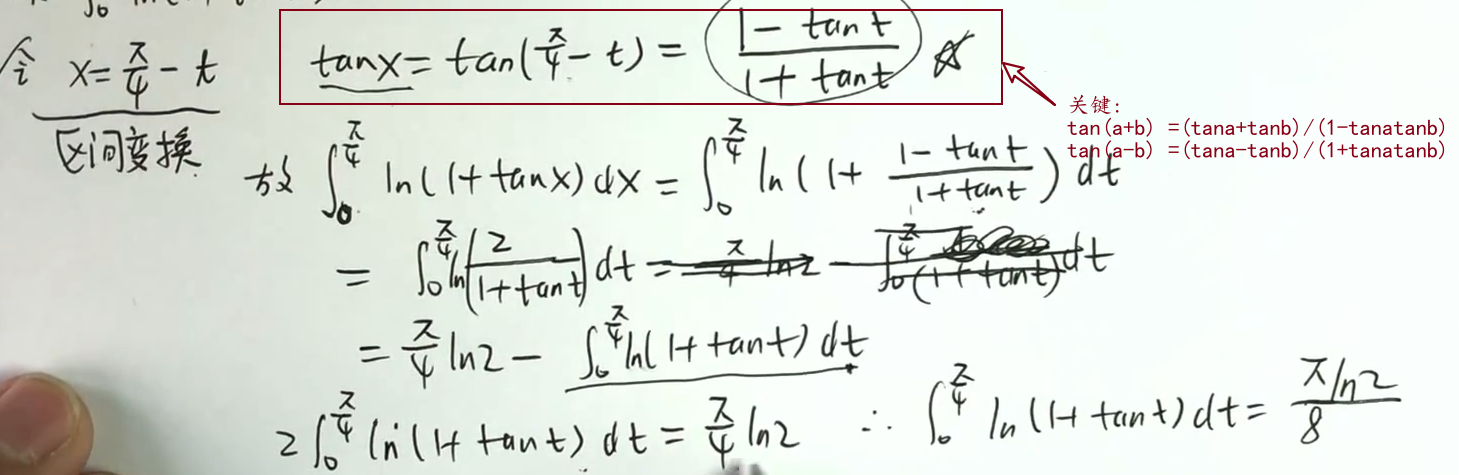 令 x=π/4-t tanx=tan(π/4-t)=(1-tant)/(1+tant) ☆
区间变换
关键:
tan(a+b) =(tana+tanb)/(1-tanatanb)
tan(a-b) =(tana-tanb)/(1+tanatanb)
故 ∫₀^(π/4) ln(1+tanx)dx = ∫₀^(π/4) ln(1+ (1-tant)/(1+tant)) dt
= ∫₀^(π/4) ln(2/(1+tant)) dt
= π/4 ln2 - ∫₀^(π/4) ln(1+tant) dt
2∫₀^(π/4) ln(1+tant) dt = π/4 ln2 ∴ ∫₀^(π/4) ln(1+tant)dt = πln2/8